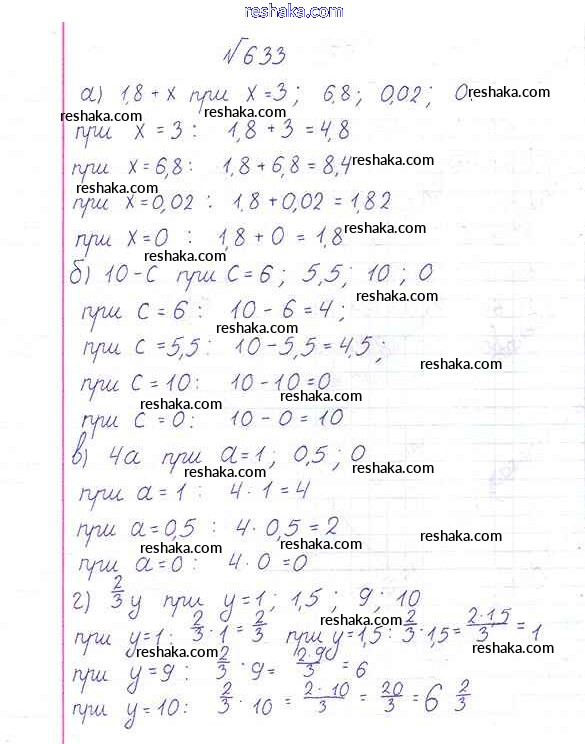 reshaka.com
№633
а) 1,8 + x при x = 3; 6,8; 0,02; 0. reshaka.com
reshaka.com reshaka.com
при x = 3 : 1,8 + 3 = 4,8
при x = 6,8 : 1,8 + 6,8 = 8,4 reshaka.com
reshaka.com
при x = 0,02 : 1,8 + 0,02 = 1,82
при x = 0 : 1,8 + 0 = 1,8 reshaka.com
reshaka.com
б) 10 - с при с = 6 ; 5,5; 10 ; 0
reshaka.com
при с = 6 : 10 - 6 = 4 ;
reshaka.com
при с = 5,5 : 10 - 5,5 = 4,5 ;
reshaka.com
при с = 10 : 10 - 10 = 0
reshaka.com reshaka.com
при с = 0 : 10 - 0 = 10
в) 4а при а = 1 ; 0,5 ; 0
reshaka.com reshaka.com
при а = 1 : 4 · 1 = 4
при а = 0,5 : 4 · 0,5 = 2
reshaka.com reshaka.com reshaka.com
при а = 0 : 4 · 0 = 0
г) 2/3 y при y = 1 ; 1,5 ; 9 ; 10
reshaka.com reshaka.com
при y = 1 : 2/3 · 1 = 2/3 при y = 1,5 : 2/3 · 1,5 = 2·1,5/3 = 1
reshaka.com reshaka.com
при y = 9 : 2/3 · 9 = 2·9/3 = 6
при y = 10 : 2/3 · 10 = 2·10/3 = 20/3 = 6 2/3